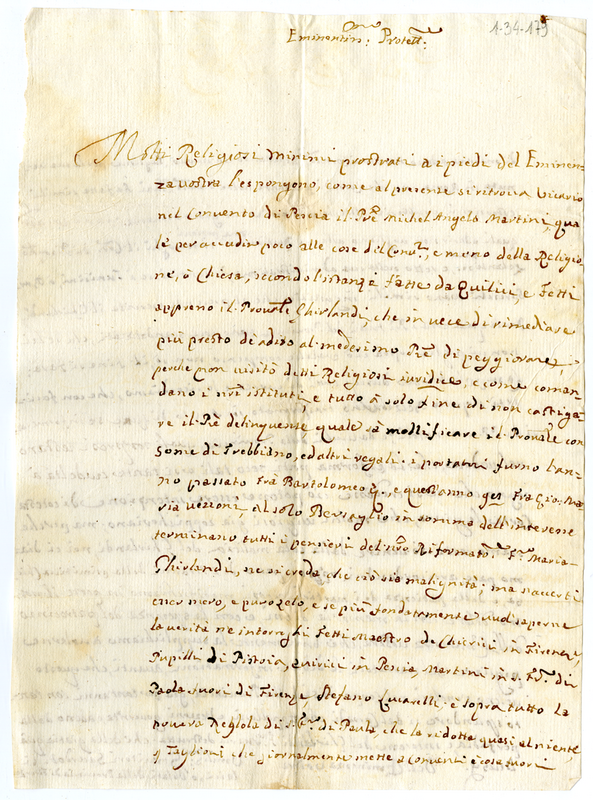 Eminentiss: Protett:
1-34-179
Molti Religiosi Minimi prostrati a i piedi del Eminen-
za vostra l'espongono, come al presente si ritrova Vicario
nel Convento di Pescia il Pre Michel Angelo Martini, qua
le per accudir poco alle cose del Convto, e meno della Religio
ne, ò Chiesa, secondo l'istanze fatte da Quilici, e Fetti
appreno il Provale Ghirlandi, che in vece di rimediare
più presto dè adito al medesimo Pre di peggiorare,
perche non visitò detti Religiosi iuridice, e come coman-
dano i nri istituti, e tutto à solo fine di non castiga-
re il Pre delinquente quale sà mollificare il Provale con
some di Trebbiano, ed altri regali, i portatori furno l'an-
no passato Frà Bartolomeo e quest'anno Fra Gio: Ma
ria Vezzoni, al solo Bersaglio in somma dell'interesse
terminano tutti i pensieri del nro Riformato Fr Maria
Ghirlandi, ne si creda che ciò sia malignità, ma n'accerti
esser mero, e puro zelo, e se più fondatamente vuol saperne
la verità ne interroghi Fetti Maestro de Chierici in Firenze,
Pupilli di Pistoia, Quirici in Pescia, Martini in S. F. di
Paola fuori di Firenze, Stefano Lucarelli, e sopra tutto la
povera Regola di S. F. di Paula, che la ridotta quasi al niente,
Taglioni che giornalmente mette a Conventi e cose fuori